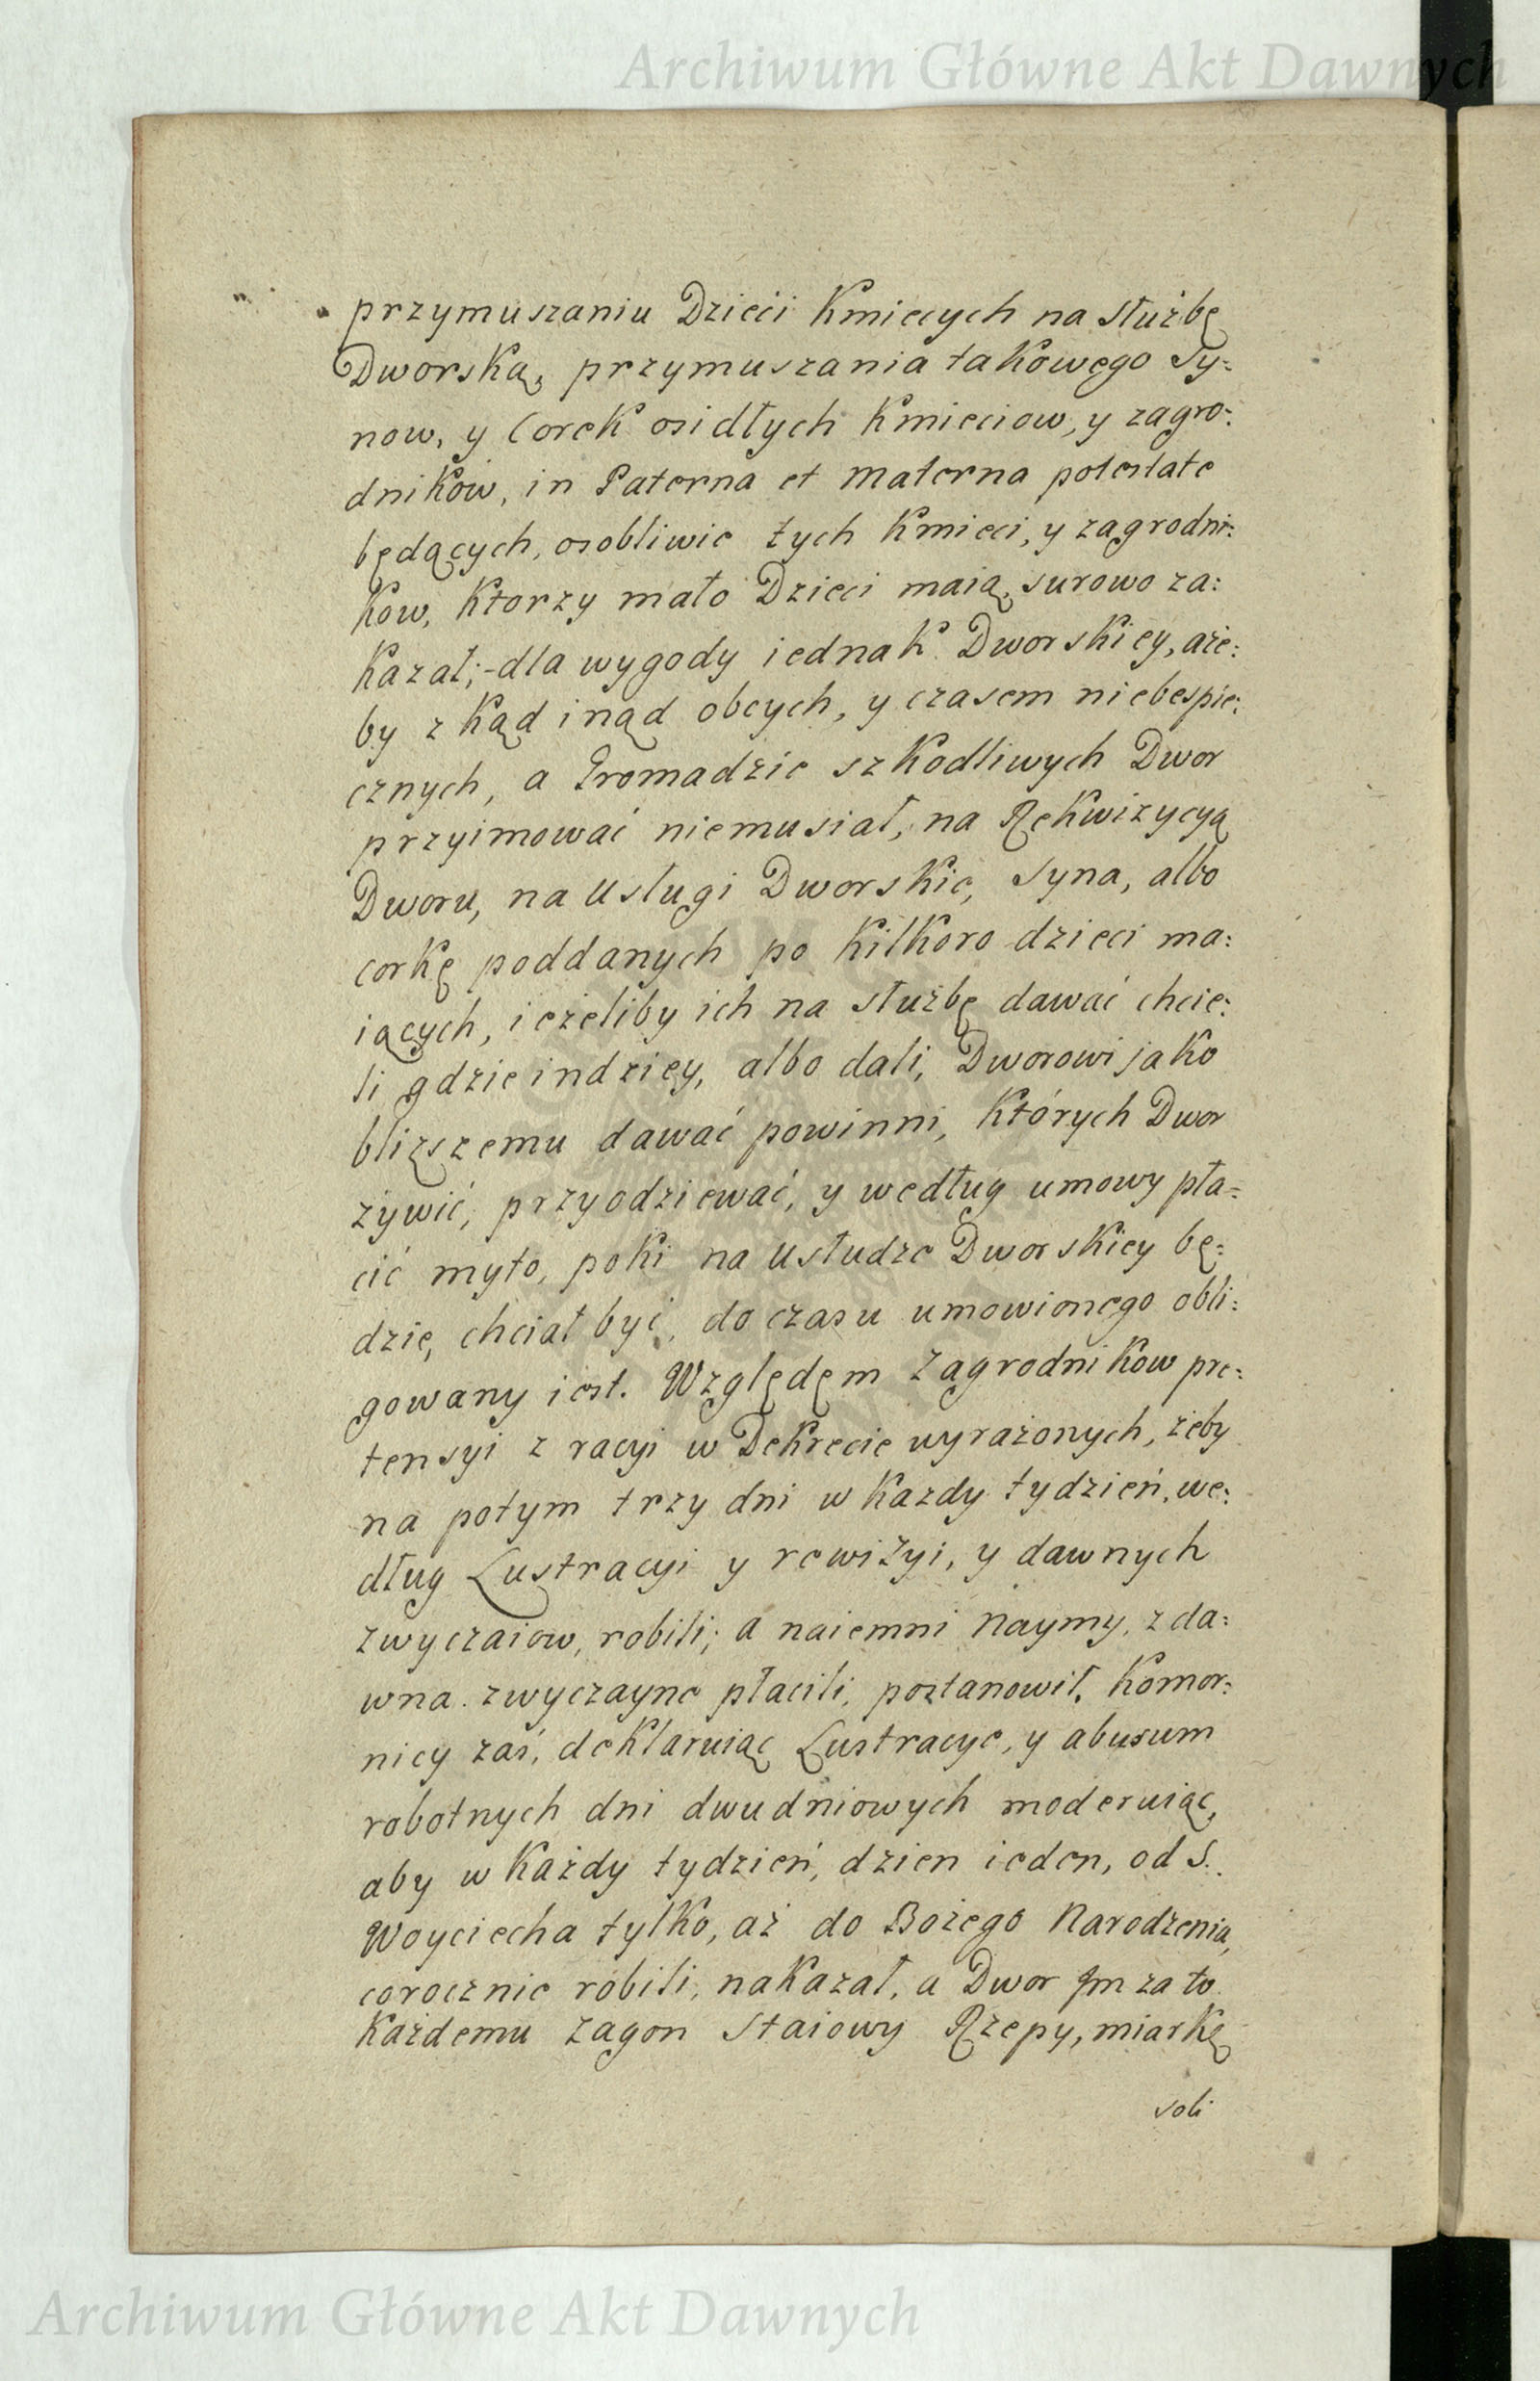 Archiwum Główne Akt Dawnych
przymuszaniu Dzieci Kmiecych na służbę
Dworską, przymuszania takowego Sy=
now, y Corek osidłych Kmieciow, y zagro=
dników, in Paterna et Materna potestate
będących, osobliwie tych Kmieci, y zagrodni=
kow, Ktorzy mało Dzieci maią, surowo za=
kazał; - dla wygody iednak Dworskiey, aże=
by z kąd inąd obcych, y czasem niebespie=
cznych, a Gromadzie szkodliwych Dwor
przyimować niemusiał, na Rekwizycyą
Dworu, na Usługi Dworskie, Syna, albo
corkę poddanych po kilkoro dzieci ma=
iących, ieżeliby ich na służbę dawać chcie=
li gdzie indziey, albo dali, Dworowi jako
bliższemu dawać powinni, Których Dwor
żywić, przyodziewać, y według umowy pła=
cić myto, poki na Usłudze Dworskiey bę=
dzie, chciał być, do czasu umowionego obli=
gowany iest. Względem Zagrodnikow pre=
tensyi z racyi w Dekrecie wyrażonych, żeby
na potym trzy dni w Kazdy tydzień, we=
dług Lustracyi y rewizyi, y dawnych
zwyczaiow, robili; a naiemni Naymy, z da=
wna zwyczayne płacili, postanowił. Komor=
nicy zaś, deklaruiąc Lustracye, y abusum
robotnych dni dwudniowych moderuiąc,
aby w Każdy tydzień, dzien ieden, od S.
Woyciecha tylko, aż do Bożego Narodzenia,
corocznie robili, nakazał, a Dwor Im za to
Każdemu zagon Staiowy Rzepy, miarkę
soli
Archiwum Główne Akt Dawnych